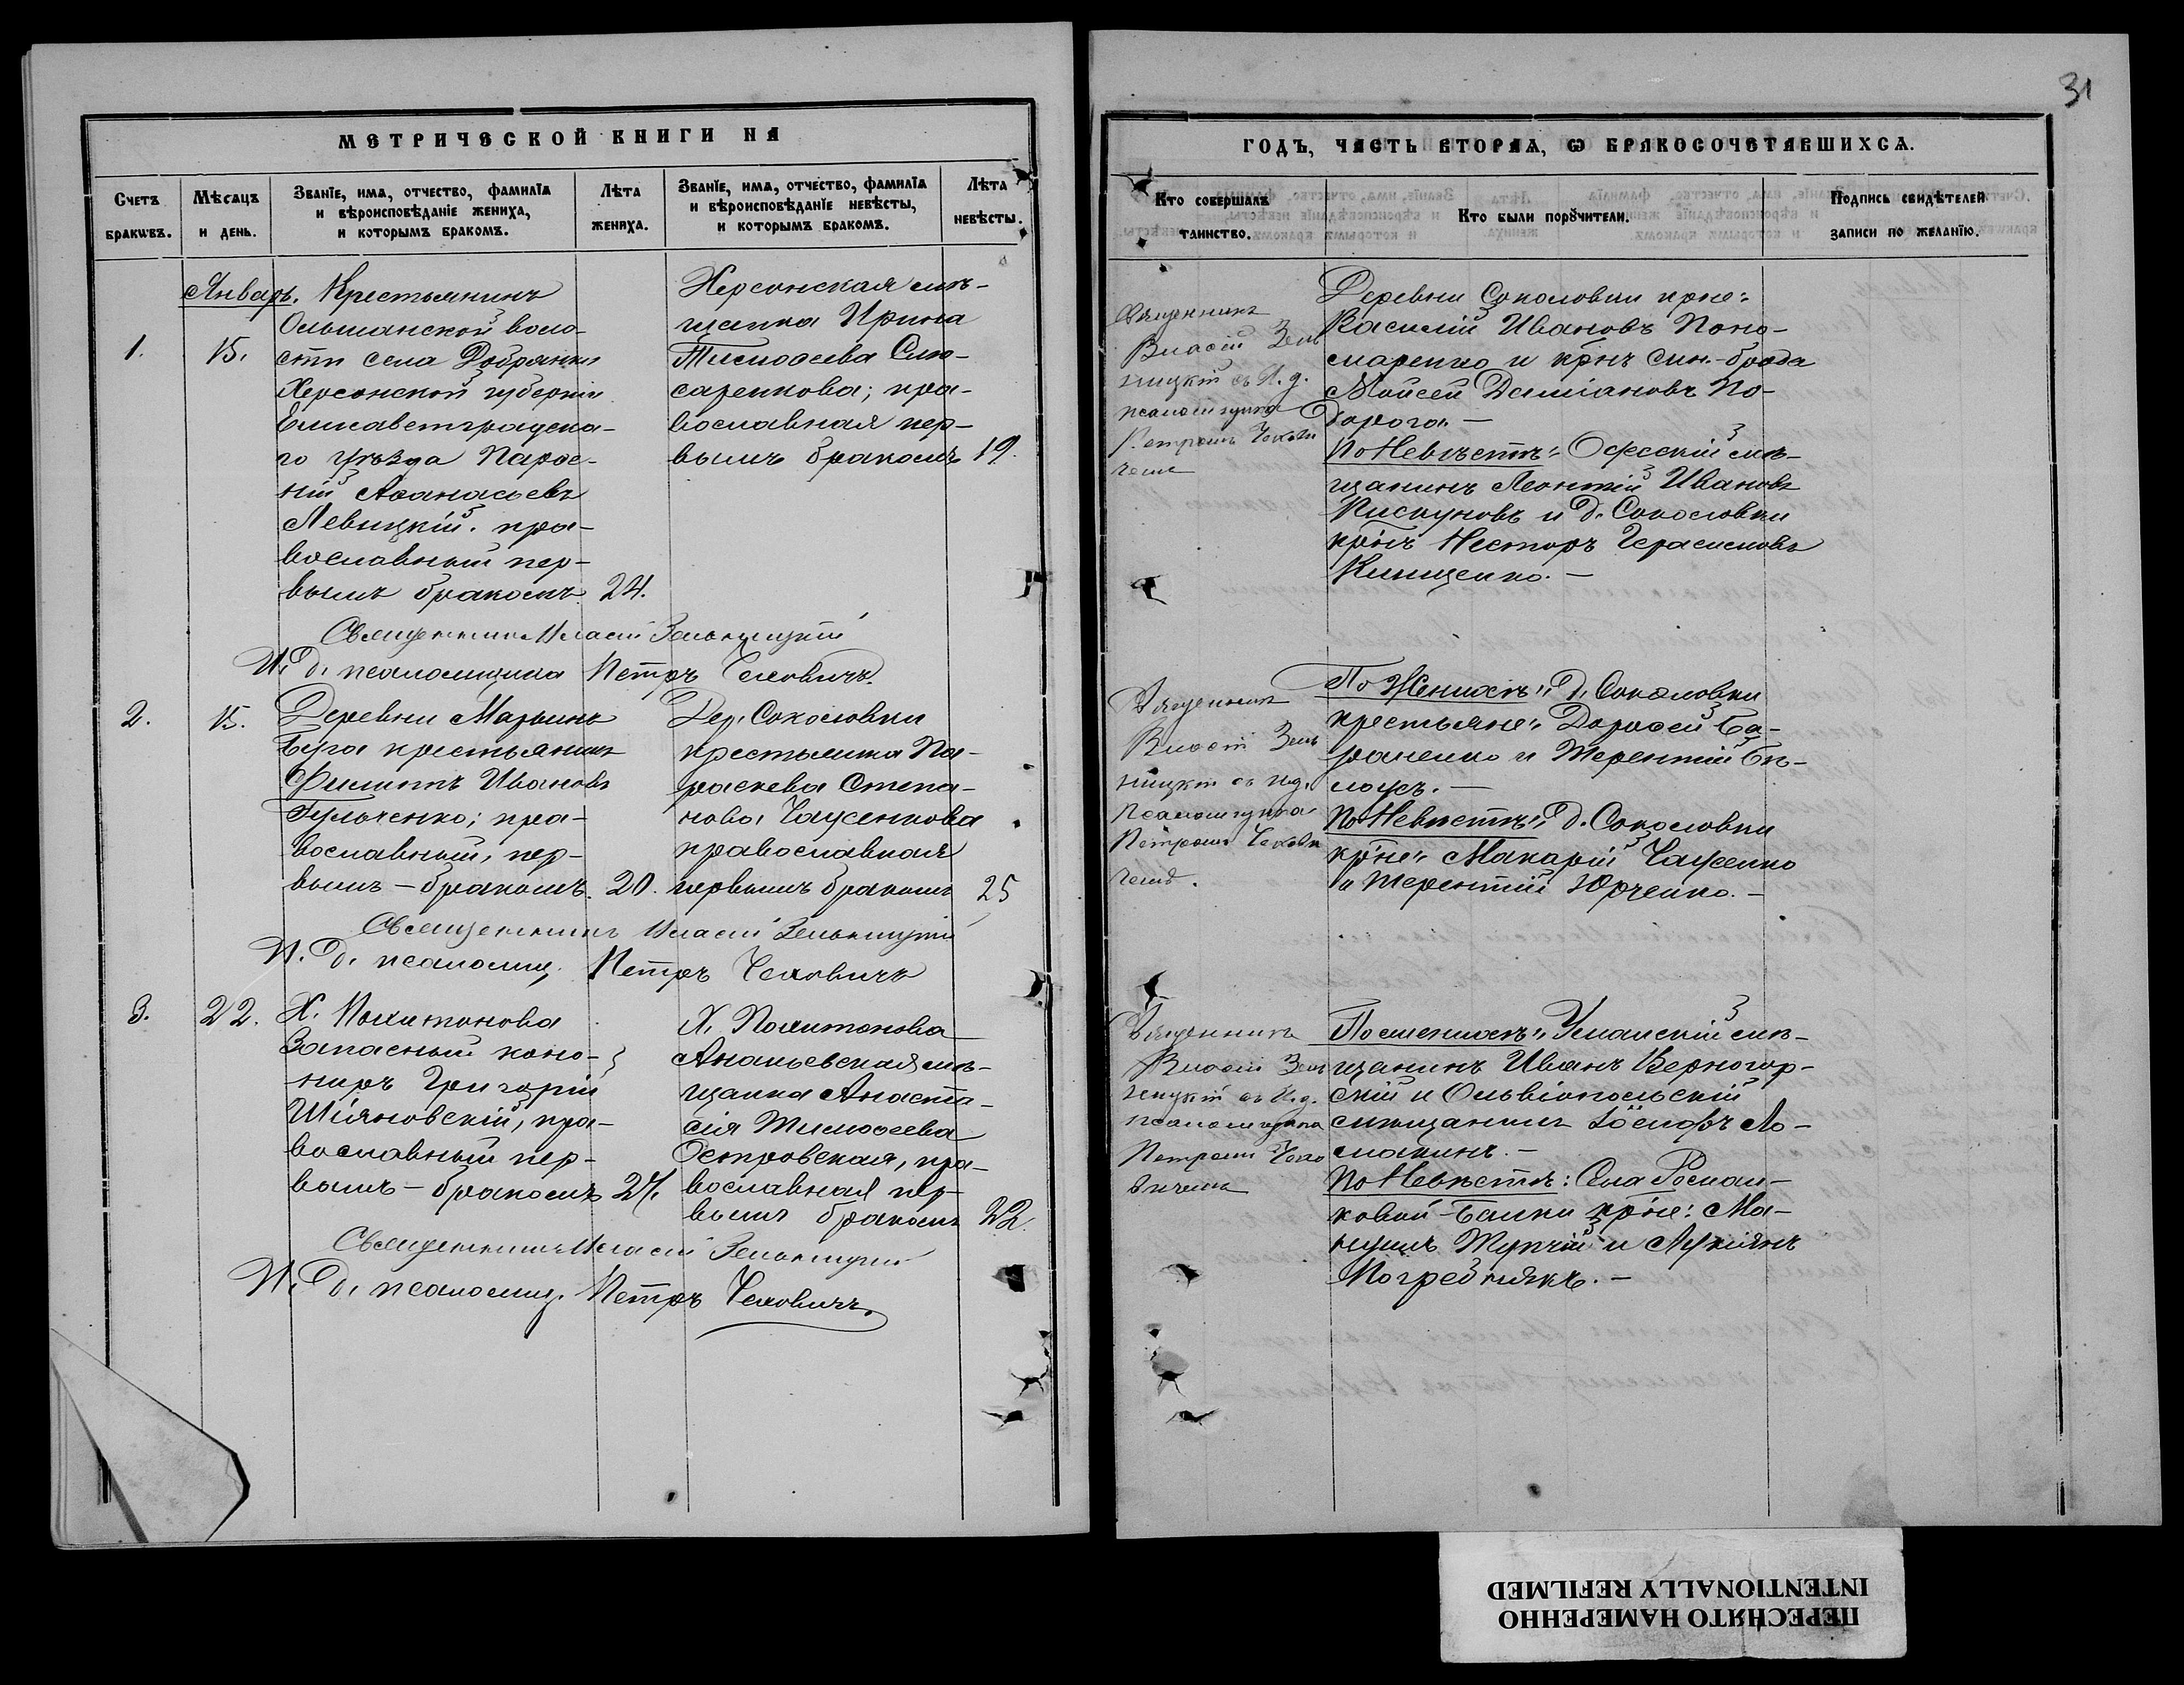 МЕТРИЧЕСКОЙ КНИГИ НА
Счетъ браковъ.
Мѣсяцъ и день.
Званїе, имя, отчество, фамилїя
и вѣроисповѣданїе жениха,
и которымъ бракомъ.
Лѣта
жениха.
Званїе, имя, отчество, фамилїя
и вѣроисповѣданїе невѣсты,
и которымъ бракомъ.
Лѣта
невѣсты.
Январь.
1.
15.
Крестьянинъ
Ольшанской воло-
сти села Добрянки
Херсонской губерніи
Елисаветградска-
го уѣзда Парѳе-
ній Аѳанасьевъ
Левицкій. пра-
вославный пер-
вымъ бракомъ.
24.
Херсонская мѣ-
щанка Ирина
Тимоѳеева Слю-
саренкова; пра-
вославная пер-
вымъ бракомъ
19.
Священникъ Власій Зельницкій
И. д. псаломщика Петръ Чеховичъ.
2.
15.
Деревни Марьинъ
Буга крестьянинъ
Филиппъ Ивановъ
Гульченко; пра-
вославный, пер-
вымъ – бракомъ.
20.
Дер. Соколовки
крестьянка Па-
раскева Степа-
нова Чаусенкова
православная
первымъ бракомъ
25
Священникъ Власій Зельницкій
И. д. псаломщ. Петръ Чеховичъ
3.
22.
Х. Политонова
Запасный кано-
ниръ Григорій
Шіяновскій, пра-
вославный пер-
вымъ – бракомъ
27.
Х. Политонова
Ананьевская мѣ-
щанка Анаста-
сія Тимоѳеева
Островская, пра-
вославная пер-
вымъ бракомъ
22.
Священникъ Власій Зельницкій
И. д. псаломщ. Петръ Чеховичъ.
31
ГОДЪ, ЧАСТЬ ВТОРАЯ, Ѡ БРАКОСОЧЕТАВШИХСЯ.
Кто совершалъ
таинство.
Кто были порꙋчители.
Подпись свидѣтелей
записи по желанїю.
Священникъ
Власій Зель
ницкій съ И. д.
псаломщика
Петромъ Чехови
чемъ
Деревни Соколовки крне:
Василій Ивановъ Поно-
маренко и крнъ Син.-брода
Мойсей Даміановъ По-
дорога. –
По Невѣстѣ: Одесскій мѣ-
щанинъ Леонтій Ивановъ
Пискуновъ и д. Соколовки
крнъ Несторъ Герасимовъ
Книщенко. –
Священникъ
Власій Зель
ницкій съ И.д.
псаломщика
Петромъ Чехови
чемъ.
По Женихѣ: д. Соколовки
крестьяне: Дороѳей Ба-
раненко и Терентій Бѣ-
лоусъ. –
По Невѣстѣ: д. Соколовки
крне: Макарій Чаусенко
и Терентій Юрченко. –
Священникъ
Власій Зель
ницкій съ И.д.
псаломщика
Петромъ Чехо
вичемъ
По женихѣ: Уманскій мѣ-
щанинъ Иванъ Верногор-
скій и Ольвіопольскій
мѣщанинъ Іосифъ Ло-
макинъ. –
По Невѣстѣ: Села Роман-
ковой-Балки крне: Ма-
нуилъ Тупчій и Лукіянъ
Погребнякъ. –
ПЕРЕСНЯТО НАМЕРЕННО
INTENTIONALLY REFILMED